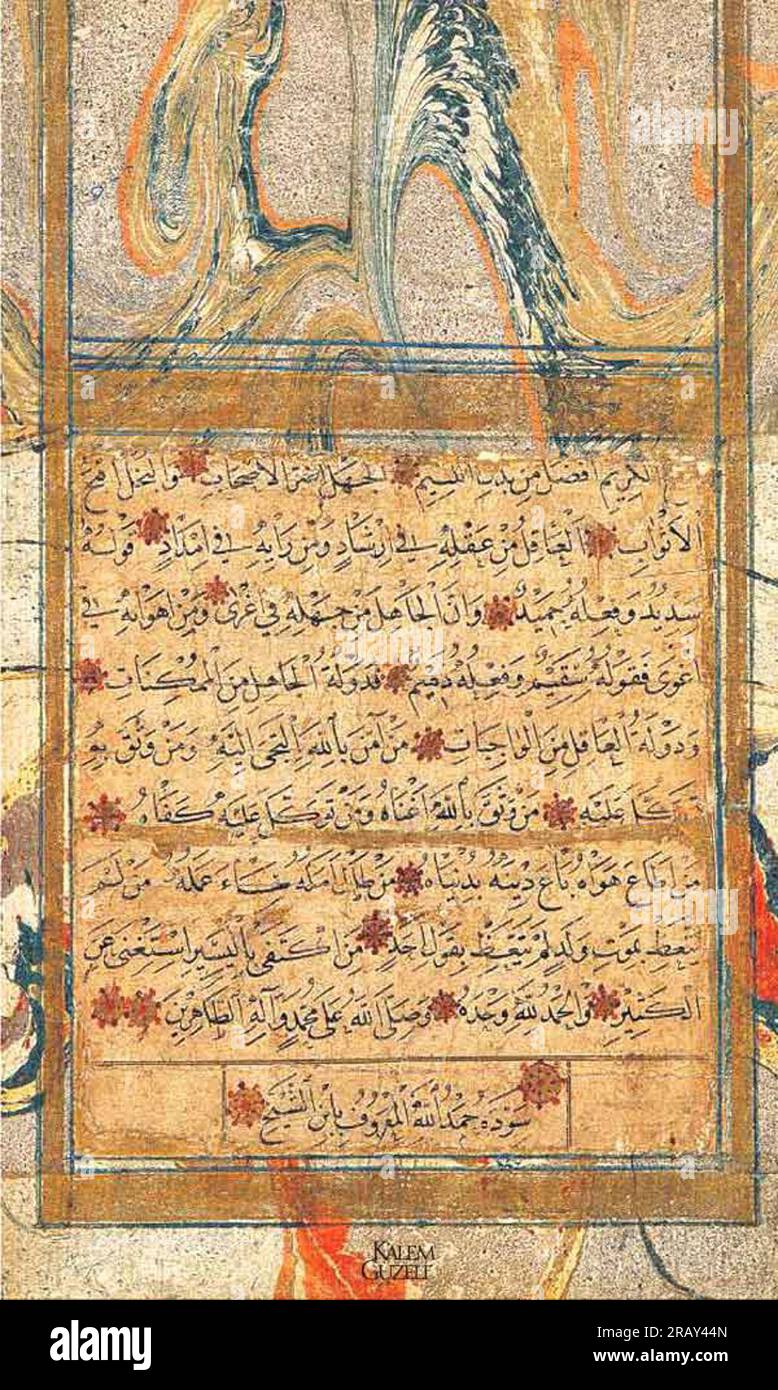 الكريم افضل من الجهل شر الاصحاب والبخل اقبح
الاثواب العاقل من عقله في ارشاد ومن رايه في امداد قوله
سديد وفعله حميد وان الجاهل من جهله في اغرى ومن اهوائه في
اغوى فقوله سقيم وفعله ذميم فدولة الجاهل من الممكنات
ودولة العاقل من الواجبات من آمن بالله التجى اليه ومن وثق به
توكل عليه من وثق بالله اغناه ومن توكل عليه كفاه
من اطاع هواه باع دينه بدنياه من طال امله ساء عمله من لم
يتعظ بموت ولد لم يتعظ بقول احد من اكتفى باليسير استغنى عن
الكثير والحمد لله وحده وصلى الله على محمد وآله الطاهرين
سوده حمد الله المعروف بابن الشيخ
KALEM
GUZELI
alamy
Image ID: 2RAY44N
www.alamy.com